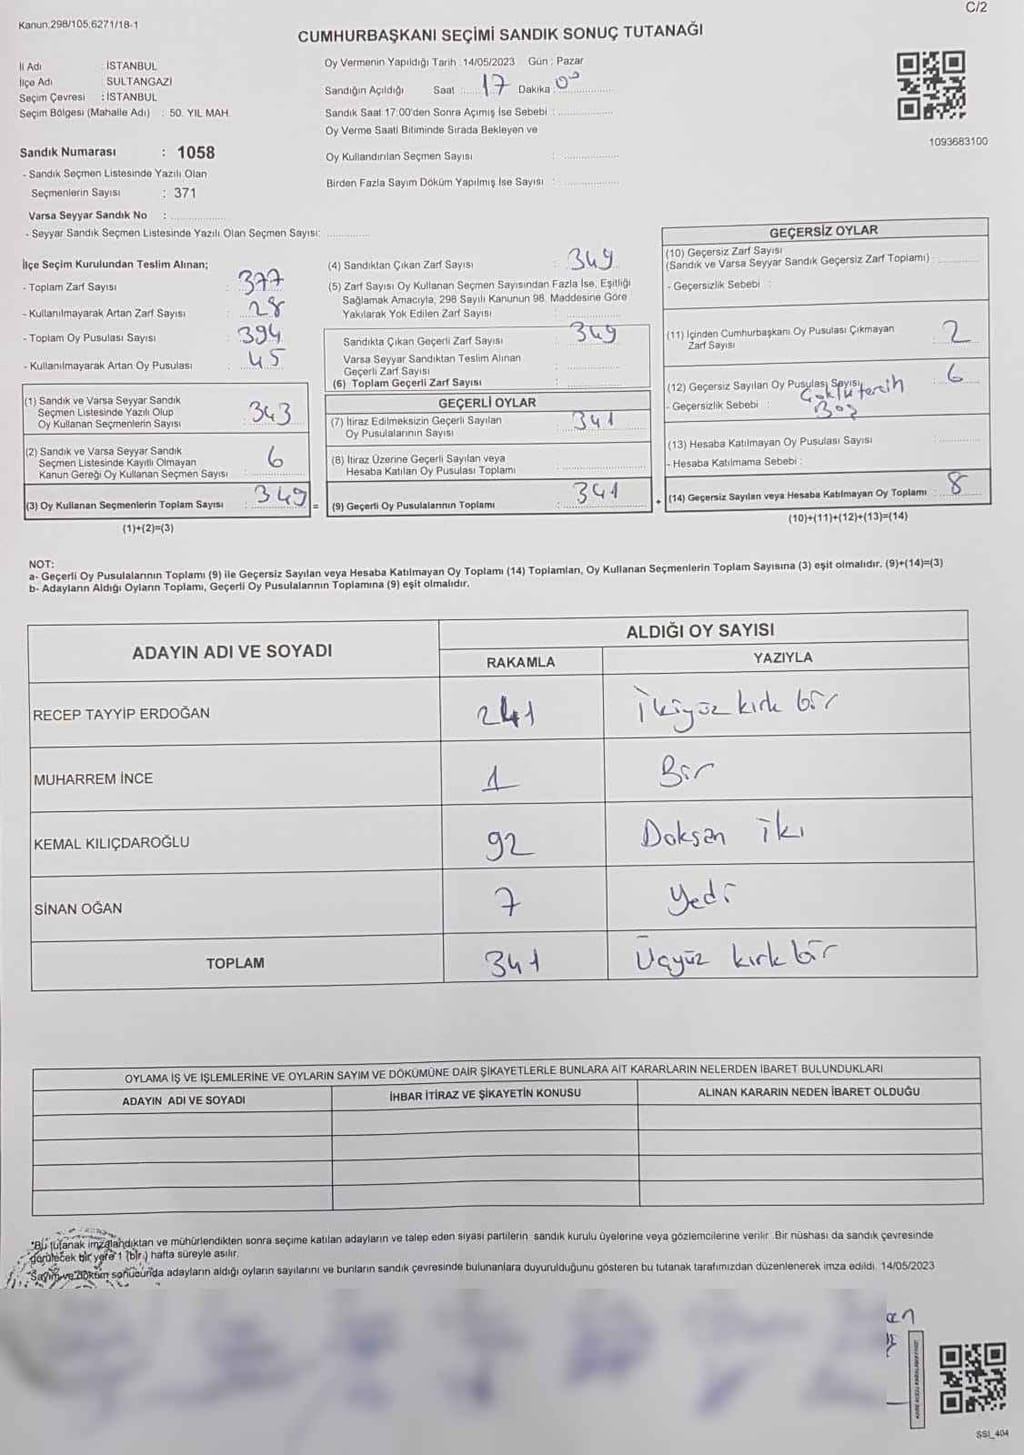 C/2
Kanun.298/105,6271/18-1
CUMHURBAŞKANI SEÇİMİ SANDIK SONUÇ TUTANAĞI
İl Adı : İSTANBUL
İlçe Adı : SULTANGAZİ
Seçim Çevresi : İSTANBUL
Seçim Bölgesi (Mahalle Adı) : 50. YIL MAH.
Sandık Numarası : 1058
- Sandık Seçmen Listesinde Yazılı Olan
Seçmenlerin Sayısı : 371
Varsa Seyyar Sandık No :
- Seyyar Sandık Seçmen Listesinde Yazılı Olan Seçmen Sayısı:
Oy Vermenin Yapıldığı Tarih : 14/05/2023 Gün : Pazar
Sandığın Açıldığı Saat : 17 Dakika 00
Sandık Saat 17:00'den Sonra Açımış İse Sebebi :
Oy Verme Saati Bitiminde Sırada Bekleyen ve
Oy Kullandırılan Seçmen Sayısı :
Birden Fazla Sayım Döküm Yapılmış İse Sayısı :
1093683100
İlçe Seçim Kurulundan Teslim Alınan;
- Toplam Zarf Sayısı : 377
- Kullanılmayarak Artan Zarf Sayısı : 28
- Toplam Oy Pusulası Sayısı : 394
- Kullanılmayarak Artan Oy Pusulası : 45
(1) Sandık ve Varsa Seyyar Sandık
Seçmen Listesinde Yazılı Olup
Oy Kullanan Seçmenlerin Sayısı : 343
(2) Sandık ve Varsa Seyyar Sandık
Seçmen Listesinde Kayıtlı Olmayan
Kanun Gereği Oy Kullanan Seçmen Sayısı : 6
(3) Oy Kullanan Seçmenlerin Toplam Sayısı : 349
(1)+(2)=(3)
(4) Sandıktan Çıkan Zarf Sayısı : 349
(5) Zarf Sayısı Oy Kullanan Seçmen Sayısından Fazla İse, Eşitliği
Sağlamak Amacıyla, 298 Sayılı Kanunun 98. Maddesine Göre
Yakılarak Yok Edilen Zarf Sayısı :
Sandıkta Çıkan Geçerli Zarf Sayısı : 349
Varsa Seyyar Sandıktan Teslim Alınan
Geçerli Zarf Sayısı :
(6) Toplam Geçerli Zarf Sayısı :
GEÇERLİ OYLAR
(7) İtiraz Edilmeksizin Geçerli Sayılan
Oy Pusulalarının Sayısı : 341
(8) İtiraz Üzerine Geçerli Sayılan veya
Hesaba Katılan Oy Pusulası Toplamı :
= (9) Geçerli Oy Pusulalarının Toplamı : 341
GEÇERSİZ OYLAR
(10) Geçersiz Zarf Sayısı
(Sandık ve Varsa Seyyar Sandık Geçersiz Zarf Toplamı) :
- Geçersizlik Sebebi :
(11) İçinden Cumhurbaşkanı Oy Pusulası Çıkmayan
Zarf Sayısı : 2
(12) Geçersiz Sayılan Oy Pusulası Sayısı : 6
- Geçersizlik Sebebi : Çoklu tercih
Boş
(13) Hesaba Katılmayan Oy Pusulası Sayısı :
- Hesaba Katılmama Sebebi :
+ (14) Geçersiz Sayılan veya Hesaba Katılmayan Oy Toplamı : 8
(10)+(11)+(12)+(13)=(14)
NOT:
a- Geçerli Oy Pusulalarının Toplamı (9) ile Geçersiz Sayılan veya Hesaba Katılmayan Oy Toplamı (14) Toplamları, Oy Kullanan Seçmenlerin Toplam Sayısına (3) eşit olmalıdır. (9)+(14)=(3)
b- Adayların Aldığı Oyların Toplamı, Geçerli Oy Pusulalarının Toplamına (9) eşit olmalıdır.
ADAYIN ADI VE SOYADI ALDIĞI OY SAYISI
RAKAMLA YAZIYLA
RECEP TAYYİP ERDOĞAN 241 İkiyüz kırk bir
MUHARREM İNCE 1 Bir
KEMAL KILIÇDAROĞLU 92 Doksan iki
SİNAN OĞAN 7 Yedi
TOPLAM 341 Üçyüz kırk bir
OYLAMA İŞ VE İŞLEMLERİNE VE OYLARIN SAYIM VE DÖKÜMÜNE DAİR ŞİKAYETLERLE BUNLARA AİT KARARLARIN NELERDEN İBARET BULUNDUKLARI
ADAYIN ADI VE SOYADI İHBAR İTİRAZ VE ŞİKAYETİN KONUSU ALINAN KARARIN NEDEN İBARET OLDUĞU
*Bu tutanak imzalandıktan ve mühürlendikten sonra seçime katılan adayların ve talep eden siyasi partilerin sandık kurulu üyelerine veya gözlemcilerine verilir. Bir nüshası da sandık çevresinde
görülecek bir yere 1 (bir) hafta süreyle asılır.
Sayım ve döküm sonucunda adayların aldığı oyların sayılarını ve bunların sandık çevresinde bulunanlara duyurulduğunu gösteren bu tutanak tarafımızdan düzenlenerek imza edildi. 14/05/2023
SSI_404